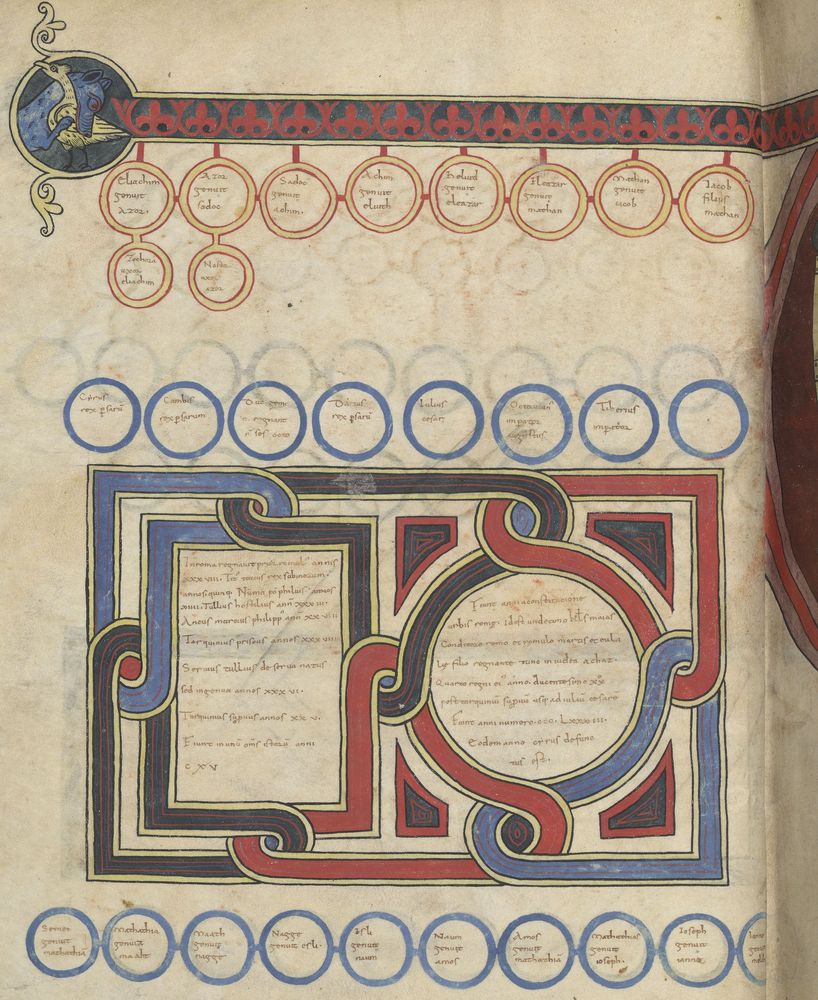 Eliachim
genuit
azor.
Azor
genuit
sadoc
Sadoc
genuit
achim.
Achim
genuit
eliuth
Heliud
genuit
eleazar
Eleazar
genuit
mathan
Mathan
genuit
iacob
Iacob
filius
mathan
uxor
eliachim
uxor
azor
Cirus
rex psarū
Cambis
rex psarum
Duo gene
Darius
rex psarū
Iulius
cesar
Octauian'
impator
augustus
Tiberius
impator
In roma regnauit prior romul' annis
xxx viii.
annos quinq. Numa pōphilius annos
xuii. Tullius hostilius ann xxx iii
Ancus marcus philipp' ann xx iiii
Tarquinius priscus annos xxx uiii
Seruius tullius de serua natus
sed ingenua annos xxx vi.
Tarquinius supuus annos xx v.
Fiunt
anni
c xv
Fiunt anni a constitucione
urbis rome. id est undecimo kls maias
Condita a remo et romulo martis et
filio regnante tunc in iudea achaz.
Quarto regni ei' anno.
post tarquiniū supuū usq ad iuliū cesarē
Fiunt anni numero. ccc. Lxxx iii.
Eodem anno cirus defunc
tus est.
Semei
genuit
mathathiā
Mathathia
genuit
maath
Maath
genuit
nagge
Nagge
genuit esli.
Esli
genuit
naum
Naum
genuit
amos
Amos
genuit
mathathiā
Mathathias
genuit
ioseph.
Ioseph
genuit
iannē